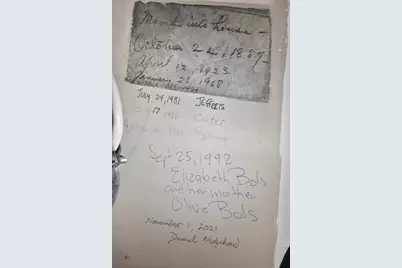 Moved into house -
October 24, 1887 -
April 12, 1923
January 28, 1968
July 24, 1981 JEFFERIS
17 Carter
Sept 25, 1992
Elizabeth Bols
and her mother
Olive Bols
November 1, 2021
Daniel